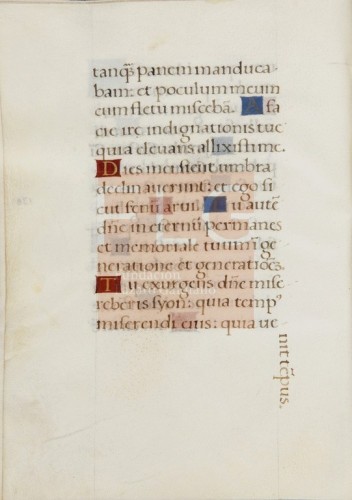 tanq̃ panem manduca
bam: et poculum meum
cum fletu miscebã. A fa
cie ire indignationis tue
quia elevans allixisti me.
Dies mei sicut umbra
declinaverunt: et ego si
cut fenũ arui. Tu autẽ
dñe in eternũ permanes
et memoriale tuum ĩ ge
neratione et generatiõe.
Tu exurgens dñe mise
reberis syon: quia temp⁹
miserendi eius: quia ve
nit tẽpus.